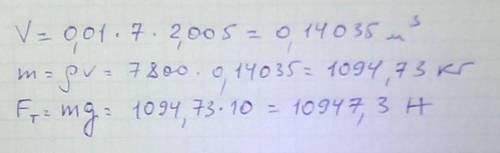 V = 0,01 · 7 · 2,005 = 0,14035 м³
m = ρv = 7800 · 0,14035 = 1094,73 кг
Fт = mg = 1094,73 · 10 = 10947,3 Н